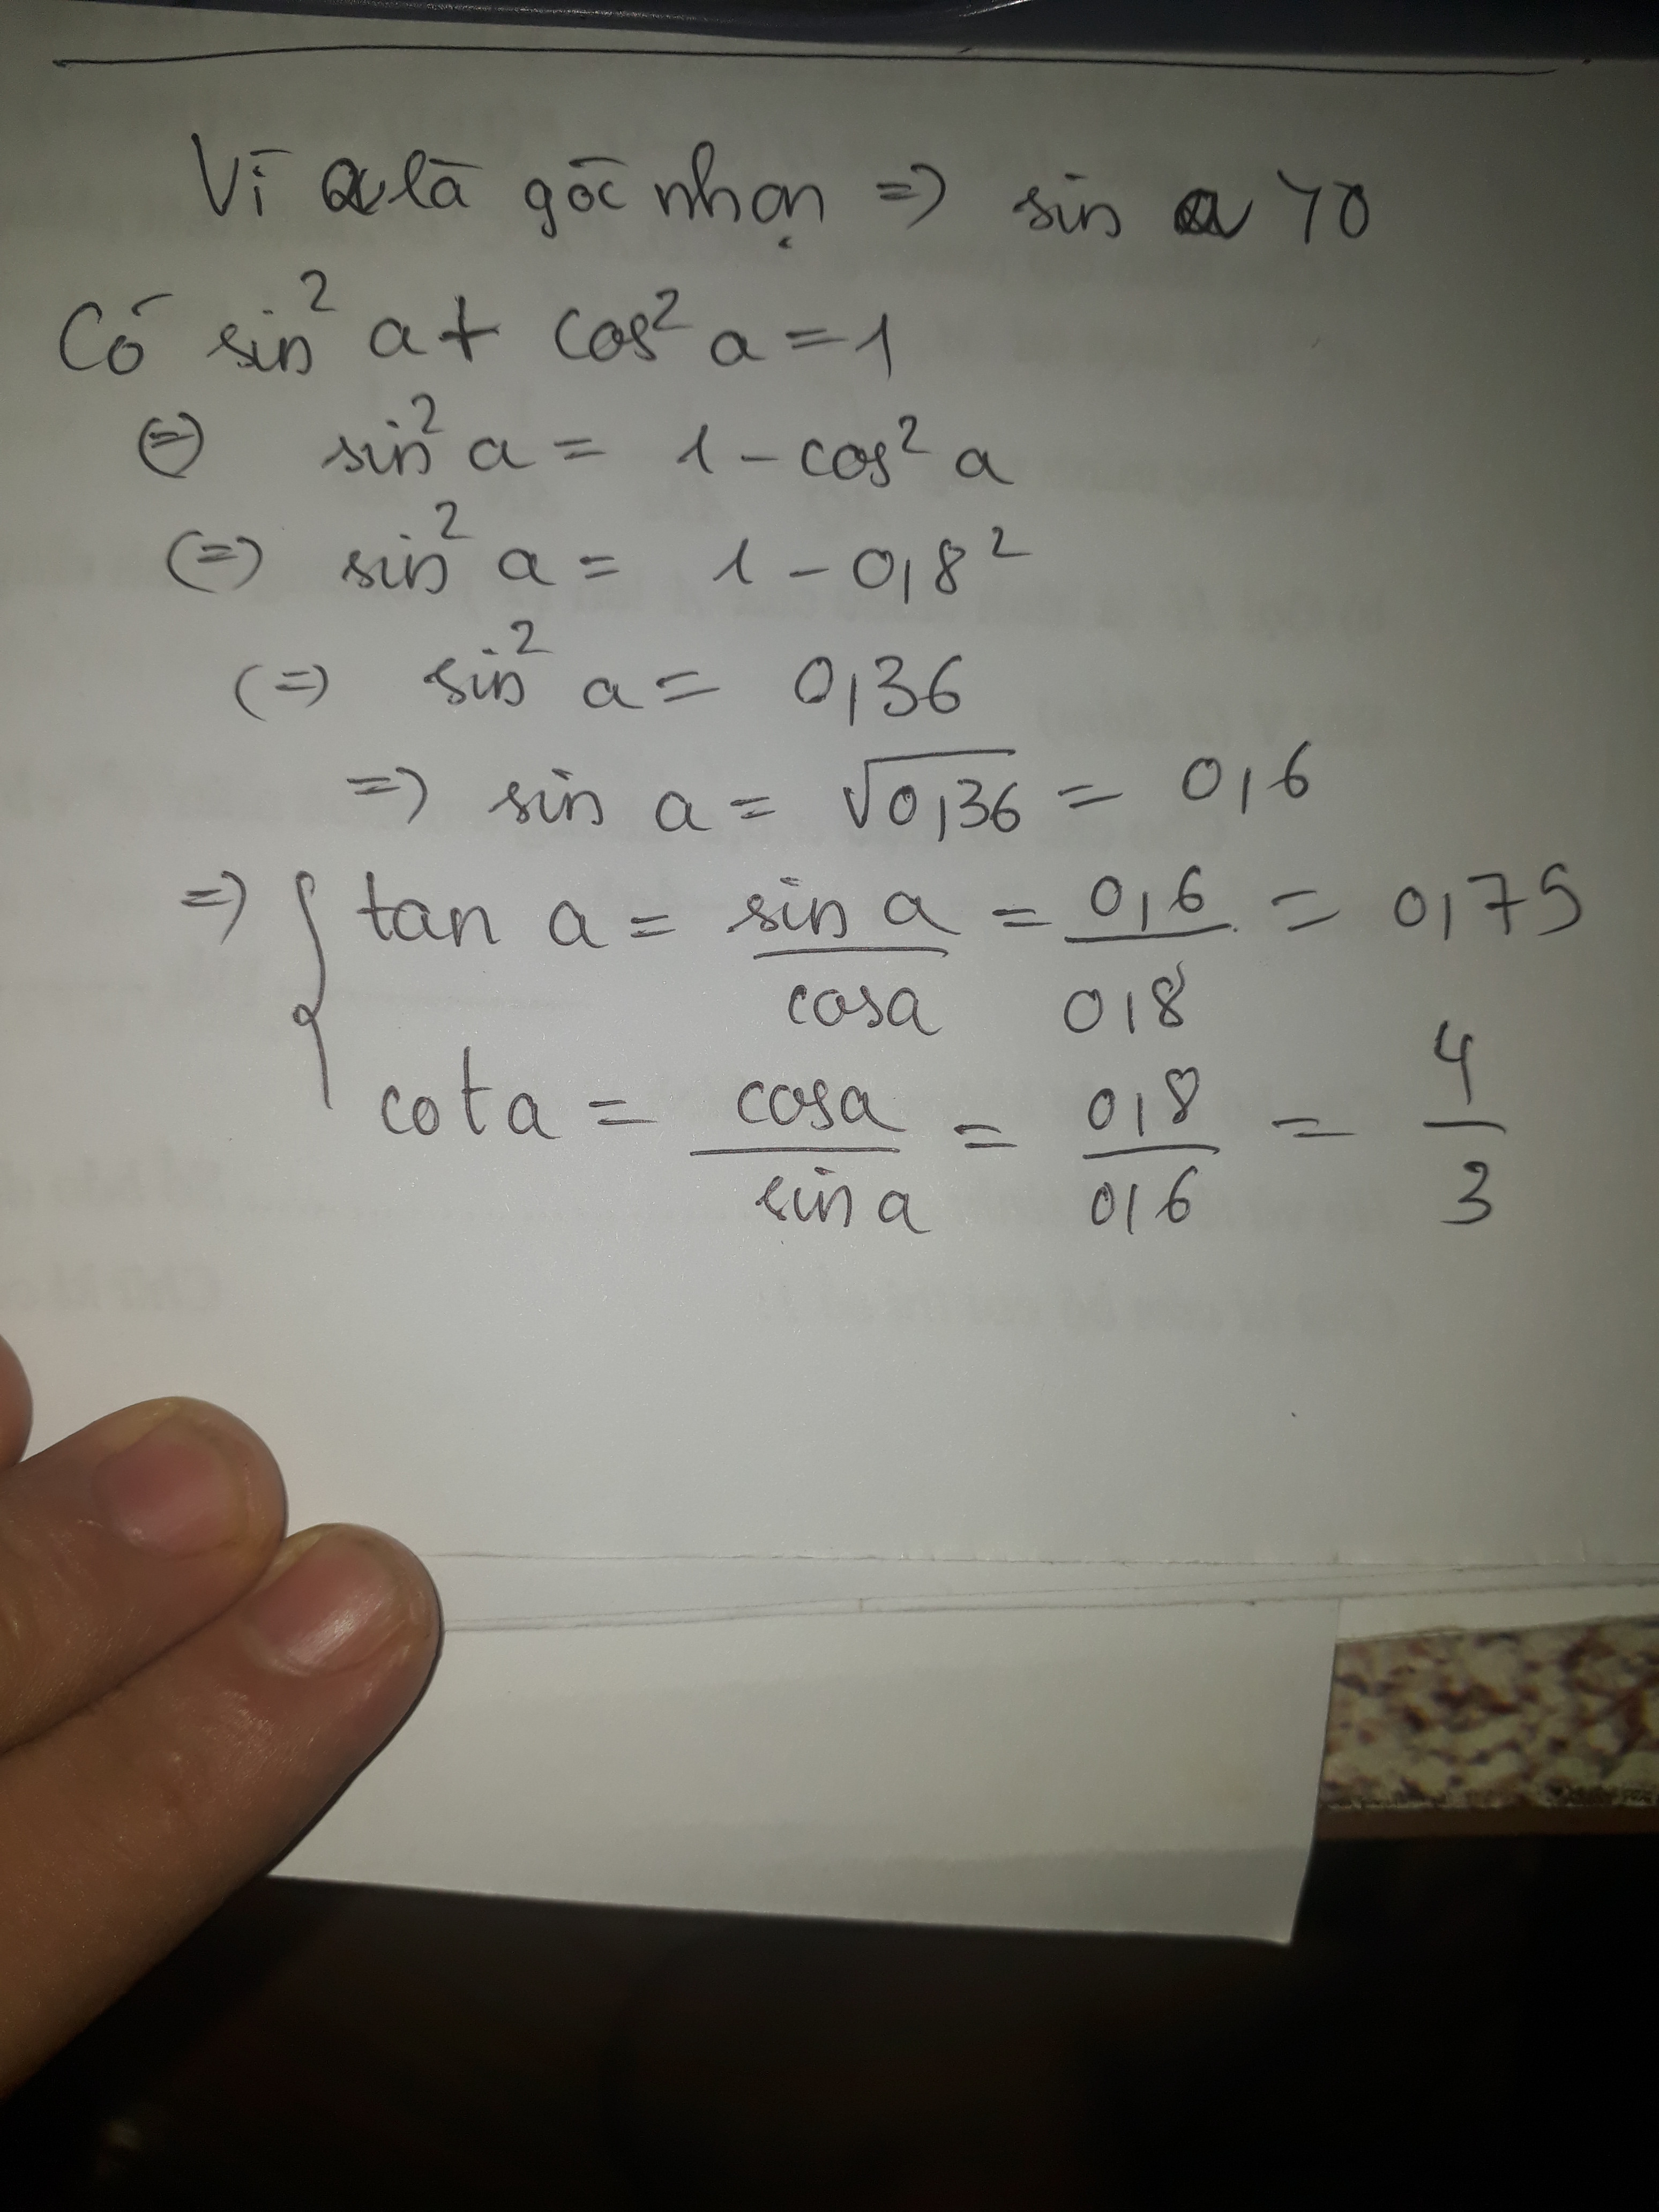 Vì a là góc nhọn => sin a > 0
Có sin² a + cos² a = 1
(=) sin² a = 1 - cos² a
(=) sin² a = 1 - 0,8²
(=) sin² a = 0,36
=> sin a = √0,36 = 0,6
=> { tan a = sin a / cos a = 0,6 / 0,8 = 0,75
cot a = cos a / sin a = 0,8 / 0,6 = 4 / 3